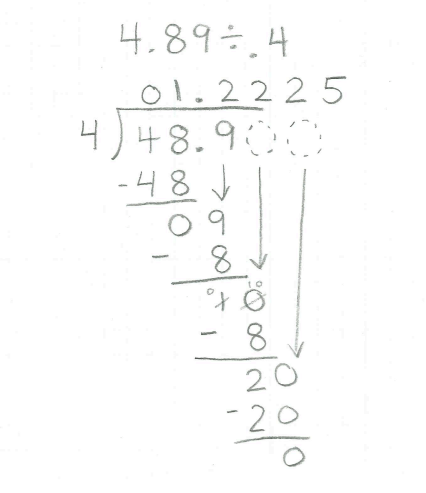 4.89÷.4
01.2225
4)48.900
-48
09
-8
0 10
10
-8
20
-20
0